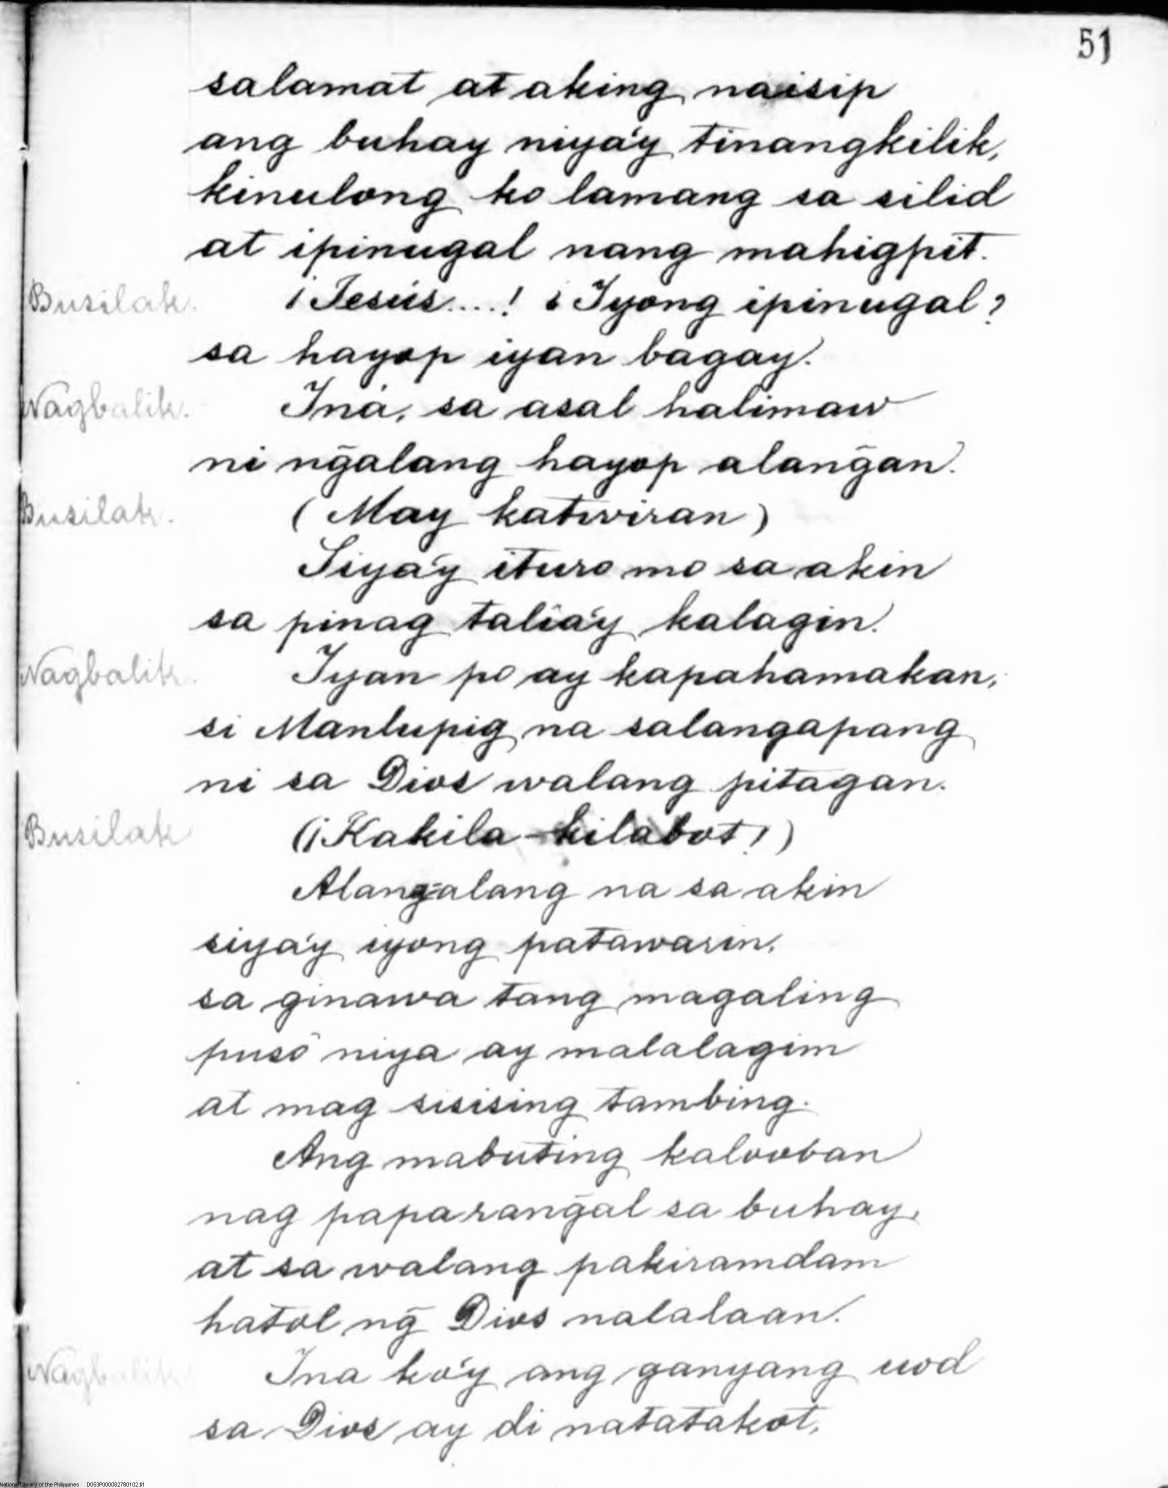 51
salamat at aking naisip
ang buhay niya'y tinangkilik,
kinulong ko lamang sa silid
at ipinugal nang mahigpit.
Busilak. ¡Jesús....! ¿Iyong ipinugal?
sa hayop iyan bagay.
Nagbalik. Iná, sa asal halimaw
ni ng̃alang hayop alang̃an.
Busilak. (May katwiran)
Siya'y ituro mo sa akin
sa pinag talia'y kalagin.
Nagbalik. Iyan po ay kapahamakan,
si Manlupig na salangapang
ni sa Dios walang pitagan.
Busilak (¡Kakila-kilabot!)
Alang̃alang na sa akin
siya'y iyong patawarin,
sa ginawa tang magaling
pusò niya ay malalagim
at mag sisising tambing.
Ang mabuting kalooban
nag paparang̃al sa buhay,
at sa walang pakiramdam
hatol ng̃ Dios nalalaan.
Nagbalik Ina ko'y ang ganyang uod
sa Dios ay di natatakot,
National Library of the Philippines